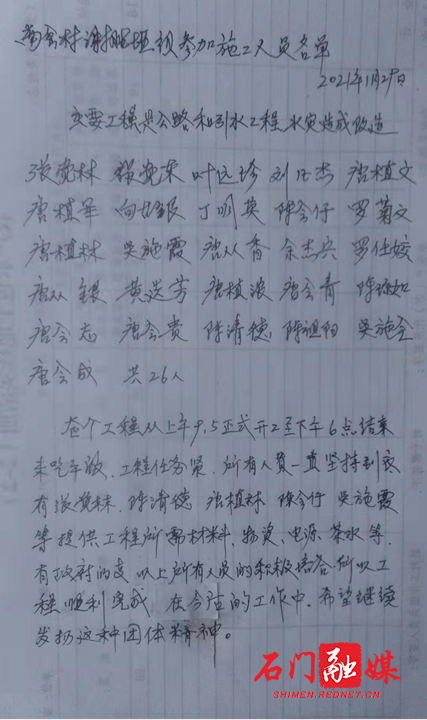 参加施工人员名单
2021年1月29日
主要工程是公路和引水工程水灾造成改造
张党林 张党荣 叶远珍 刘 杰 唐植文
唐植军 向 银 丁明英 陈会仔 罗菊文
唐植林 吴施霞 唐从香 余杰兵 罗仕姣
唐从银 黄送芳 唐植浪 唐会青 陈 如
唐会志 唐会贵 陈清德 陈祖 吴施全
唐会成 共26人
个工程从上午9.5正式开工至下午6点结束
未吃午饭、工程任务紧、所有人员一直坚持到底
有张党林、陈清德 唐植林 陈会仔 吴施霞
等提供工程所需材料、物资、电源、茶水等、
有政府的支 以上所有人员的积极配合 所以工
程顺利完成 在今后的工作中、希望继续
发扬这种团体精神。
石门融媒
SHIMEN.REDNET.CN